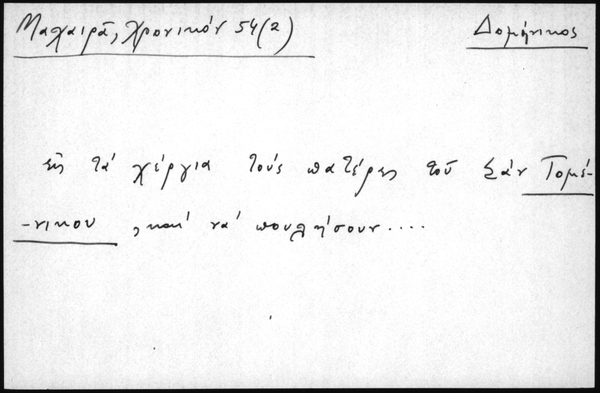 Μαχαιρᾶ, Χρονικόν 54(2)
Δομήνικος
εἰς τὰ χέργια τοὺς πατέρες τοῦ Σὰν Τομέ-
-νικου, καὶ νὰ πουλήσουν....